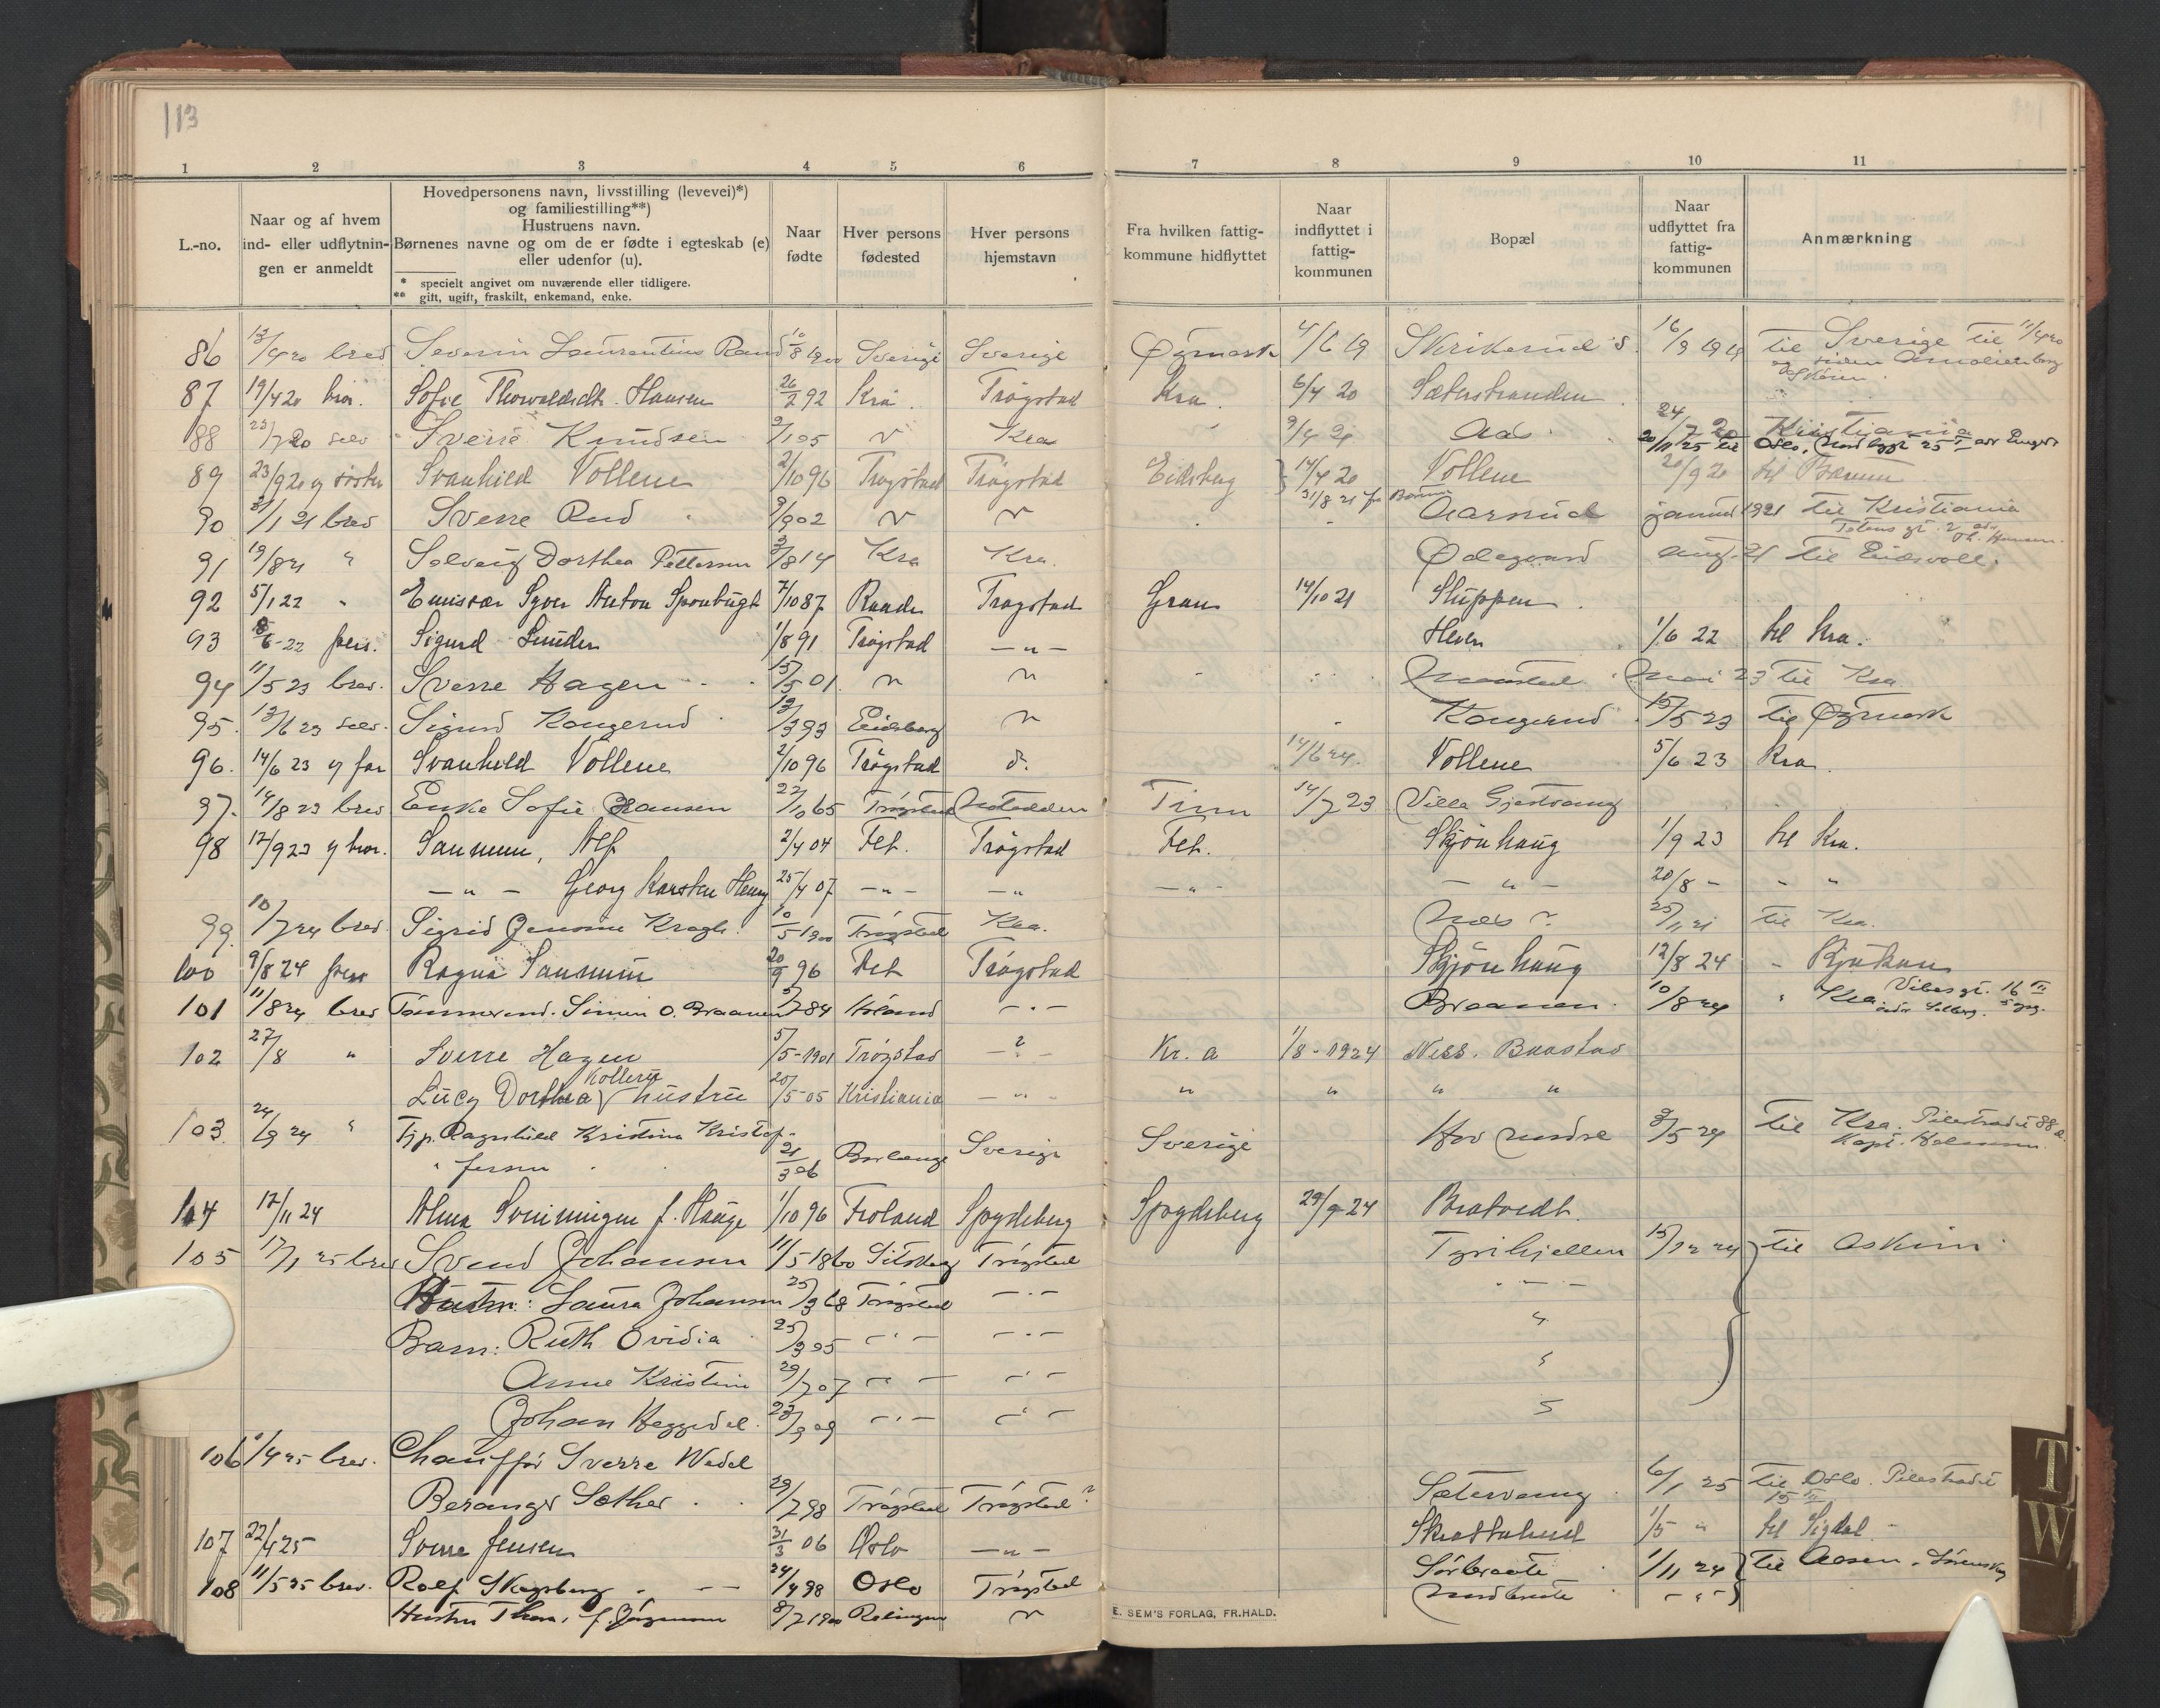 113
1 2 3 4 5 6 7 8 9 10 11
L.-no.
Naar og af hvem
ind- eller udflytnin-
gen er anmeldt
Hovedpersonens navn, livsstilling (levevei)*)
og familiestilling**)
Hustruens navn.
Børnenes navne og om de er fødte i egteskab (e)
eller udenfor (u).
* specielt angivet om nuværende eller tidligere.
** gift, ugift, fraskilt, enkemand, enke.
Naar
fødte
Hver persons
fødested
Hver persons
hjemstavn
Fra hvilken fattig-
kommune hidflyttet
Naar
indflyttet i
fattig-
kommunen
Bopæl
Naar
udflyttet fra
fattig-
kommunen
Anmærkning
86 13/4 20 brev Severin Laurentius Rand 10/8 1900 Sverige Sverige Øymark 4/6 19 Skrikerud s. 16/9 19 til Sverige til 11/4 20
87 19/4 20 bror. Sofie Thorvaldsdtr. Hansen 26/2 92 Kra. Trøgstad Kra. 6/4 20 Sæterstranden
88 23/7 20 selv Sverre Knudsen 9/1 05 Kra 24/7 20 Kristiania
20/11 25 til Oslo
89 23/9 20 v søster Svanhild Vollene 2/10 96 Trøgstad Trøgstad Eidsberg 14/4 20 Vollene 20/9 20 til Bærum
31/8 21 fr Bærum
90 21/1 21 brev Sverre Rud 9/9 02 " " Aarnud januar 1921 til Kristiania
91 19/8 21 " Solveig Dorthea Pettersen 3/8 14 Kra Kra. Ødegaard aug. 21 til Eidsvoll.
92 5/1 22 " Emissær Syver Anton Sponbugt 7/10 87 Raade Trøgstad Gran 14/10 21 Stuppen
93 8/6-22 pers. Sigurd Lunden 1/8 91 Trøgstad — " — Heven 1/6 22 til Kra.
94 11/5 23 brev. Sverre Hagen 15/5 01 " " Mai 23 til Kra
95. 13/6 23 selv. Sigurd Kongerud 13/3 93 Eidsberg " Kongerud 15/5 23 til Øymark
96. 14/6 23 v far Svanhild Vollene 2/10 96 Trøgstad do. 14/6 24. Vollene 5/6 23 Kra
97. 14/8 23 brev Enke Sofie Hansen 22/10 65 Trøgstad Notodden Tinn 14/7 23 Villa Gjestvang
98 12/9 23 v bror. Sanmum, Alf 2/4 04 Fet. Trøgstad Fet. Skjønhaug 1/9 23 til Kra.
— " — Georg Karsten Henry 25/4 07 — " — — " — " — — " — 20/8 - " "
99. 10/7 24 brev. Sigrid Jensine Kragh. 10/5 1900 Trøgstad Kra. Næs ? til Kra.
100 9/8 24 pers Ragna Sanmum 20/9 96 Fet Trøgstad Skjønhaug 12/8 24 - Rjukan
101 11/8 24 brev Tømmermd. Simen O. Braanen 84 Høland — " — Braanen 10/8 24 " Kra. Vibesgt. 16 III
102 27/8 " Sverre Hagen 5/5-1901 Trøgstad — ? — Kr. a 1/8-1924 Ness. Baastad
Lucy Dorthea Kollerü hustru 20/5-05 Kristiania — " — " " " "
103. 24/9 24 " Tjp. Ragnhild Kristina Kristof-
fersen 21/3 06 Borlänge Sverige Sverige Hov nedre 3/5 24 til Kra. Pilestradet 88
104 12/11 24 Alma Svenningsen f. Hauge 1/10 96 Froland Spydeberg Spydeberg 29/9-24 Bratvedt.
105 17/1 25 brev Svend Johansen 11/5 1860 Sitskog Trøgstad Tyrihjellen 15/12 24 til Askim
Hustru: Laura Johansen 25/3 68 Trøgstad — " — " — —
Barn: Ruth Ovidia 25/3 05 — " — — " — "
Anne Kristine 29/7 07 — " — — " — "
Johan Heggedal. 23/3 09 — " — — " — "
106 1/4 25 brev. Chauffør Sverre Wedel
Beranger Sæther 29/7 98 Trøgstad Trøgstad? Sætervang 6/1 25 til Oslo. Pilestradet 15 III
107 22/4 25 Sverre Jensen 31/3 06 Oslo — " — Skattalsrud 1/5 " til Sigdal -
108 11/5 25 brev. Rolf Skogsberg 24/4 98 Oslo Trøgstad Sørbraate 1/11 24 til Aasen.
Hustru Thora, f. Jørgensen 8/7 1900 Rælingen " Nordbraate - " -
E. SEM'S FORLAG, FR.HALD.
TW